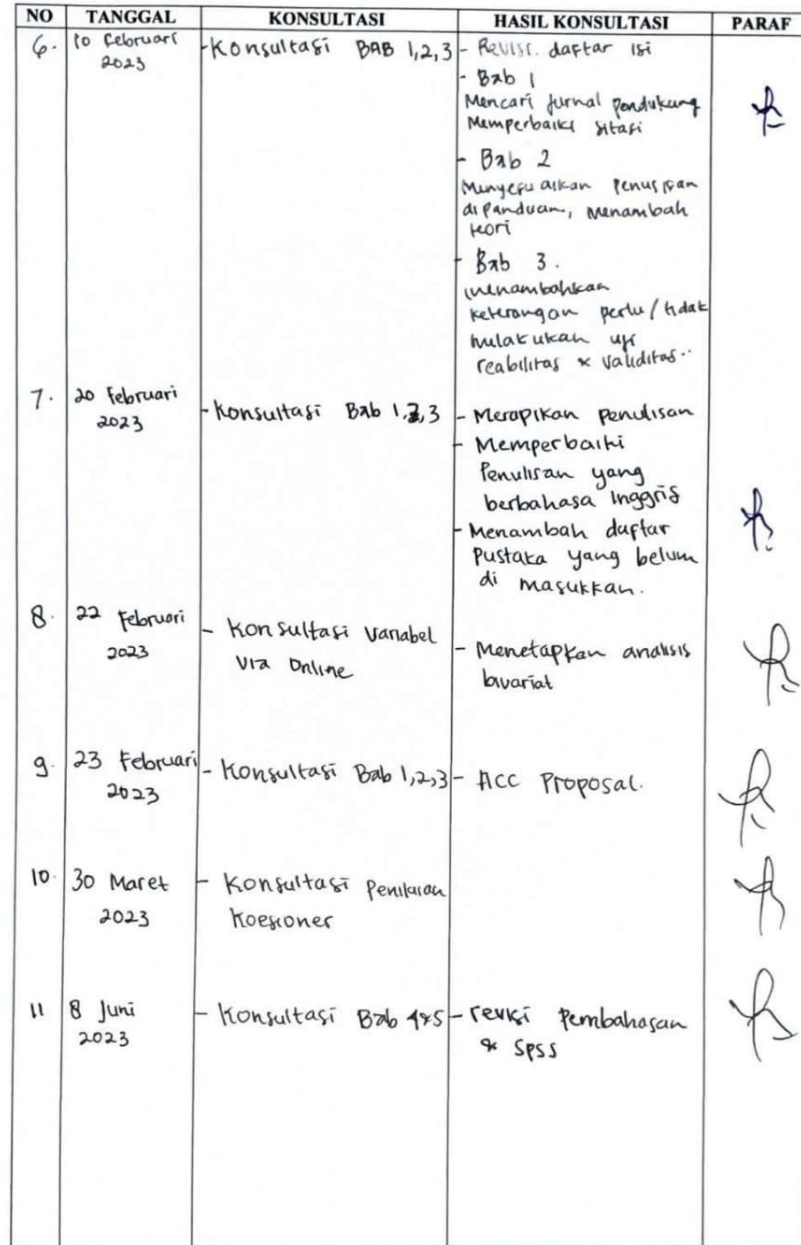 NO TANGGAL KONSULTASI HASIL KONSULTASI PARAF
6. 10 Februari 2023
- Konsultasi BAB 1,2,3
- Revisi. daftar isi
- Bab 1
Mencari jurnal pendukung
Memperbaiki sitasi
- Bab 2
Menyesuaikan Penulisan
di Panduan, Menambah
teori
- Bab 3.
menambahkan
keterangan perlu/tidak
melakukan uji
reabilitas & validitas..
7. 20 Februari
2023
- Konsultasi Bab 1,2,3
- Merapikan penulisan
- Memperbaiki
Penulisan yang
berbahasa Inggris
- Menambah daftar
Pustaka yang belum
di masukkan.
8. 22 Februari
2023
- Konsultasi Variabel
Via Online
- Menetapkan analisis
bivariat
9. 23 Februari
2023
- Konsultasi Bab 1,2,3
- ACC Proposal.
10. 30 Maret
2023
- Konsultasi Penilaian
Koesioner
11 8 Juni
2023
- Konsultasi Bab 4&5
- revisi Pembahasan
& Spss